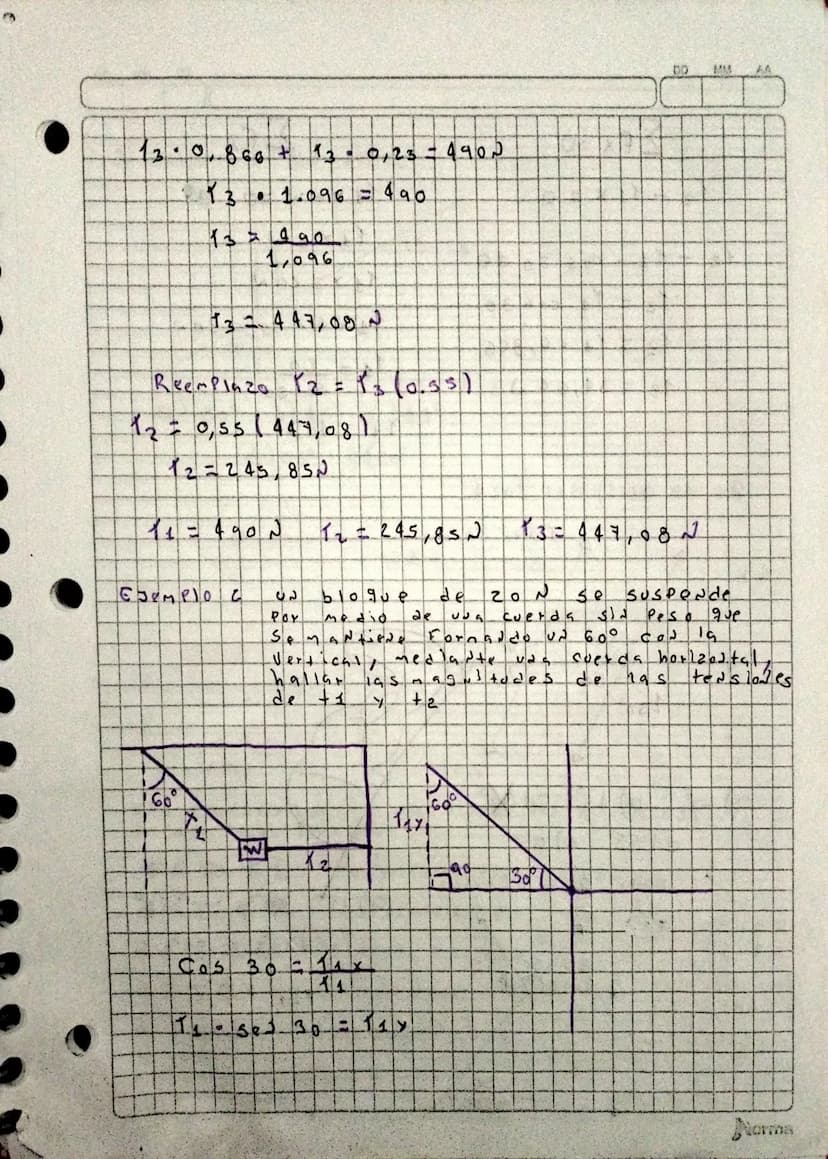 DD MM AA
T3 · 0,866 + T3 · 0,23 = 490N
T3 · 1.096 = 490
T3 = 490
1,096
T3 = 447,08 N
Reemplazo T2 = T3 (0.55)
T2 = 0,55 (447,08)
T2 = 245,85N
T1 = 490N T2 = 245,85N T3 = 447,08 N
Ejemplo 6 un bloque de 20 N se suspende
por medio de una cuerda sin peso que
se mantiene formando un 60° con la
vertical, mediante una cuerda horizontal,
hallar las magnitudes de las tensiones
de t1 y t2
60° T1 W T2
T1y 60° 90 30°
Cos 30 = T1x
T1
T1 · sen 30 = T1y
Norma